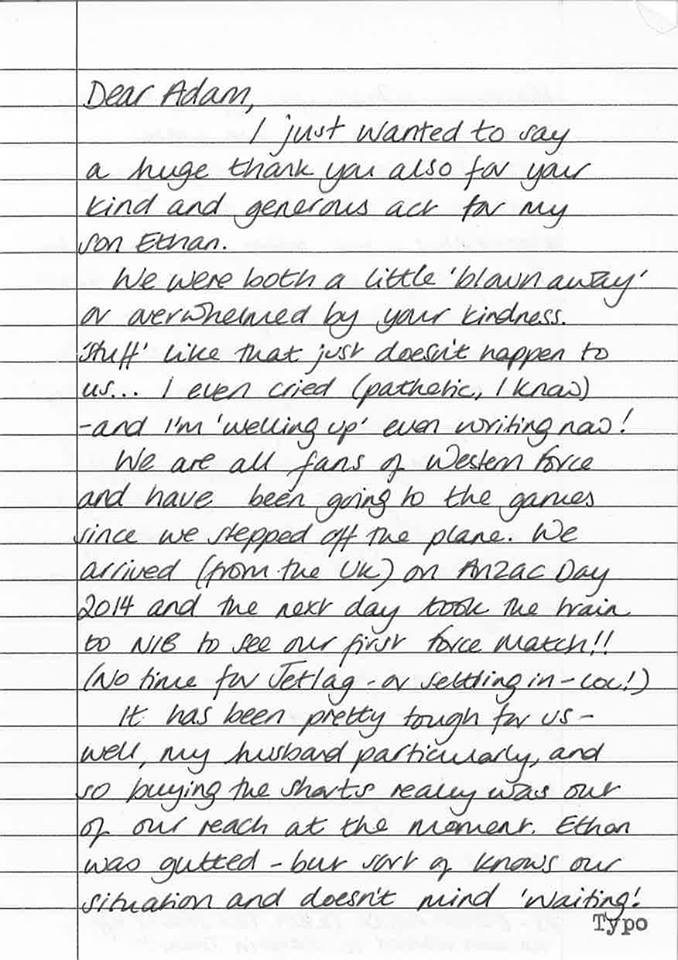 Dear Adam,
I just wanted to say
a huge thank you also for your
kind and generous act for my
son Ethan.
We were both a little 'blown away'
or overwhelmed by your kindness.
'Stuff' like that just doesn't happen to
us... I even cried (pathetic, I know)
-and I'm 'welling up' even writing now!
We are all fans of Western Force
and have been going to the games
since we stepped off the plane. We
arrived (from the UK) on Anzac Day
2014 and the next day took the train
to NIB to see our first force match!!
(No time for Jetlag - or settling in - LOL!)
It has been pretty tough for us -
well, my husband particularly, and
so buying the shorts really was out
of our reach at the moment. Ethan
was gutted - but sort of knows our
situation and doesn't mind 'waiting'.
Typo